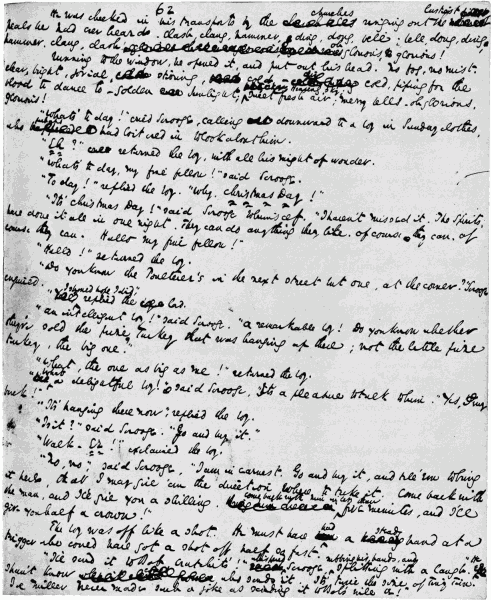 62
He was checked in his transports by the churches ringing out the lustiest
peals he had ever heard. Clash, clang, hammer, ding, dong, bell: bell dong, ding,
hammer, clang, clash glorious! glorious!
Running to the window, he opened it, and put out his head. No fog, no mist.
clear, bright, jovial, stirring, cold - cold, piping for the
blood to dance to - Golden sunlight, sweet fresh air, merry bells. Oh glorious.
glorious!
"What's to day!" cried Scrooge, calling downward to a boy in Sunday clothes,
who had loitered in to look about him.
"Eh?" returned the boy, with all his might of wonder.
"What's to day, my fine fellow!" said Scrooge.
"To day!" replied the boy. "Why, Christmas Day!"
"It's Christmas Day!" said Scrooge to himself. "I haven't missed it. The Spirits
have done it all in one night. They can do anything they like. Of course they can. Of
course they can. Hallo my fine fellow!"
"Hallo!" returned the boy.
"Do you know the Poulterer's in the next street but one, at the corner?" Scrooge
enquired. "I should hope I did,"
replied the lad.
"An intelligent boy!" said Scrooge. "A remarkable boy! Do you know whether
they've sold the prize Turkey that was hanging up there; not the little prize
turkey, the big one."
"What, the one as big as me!" returned the boy.
"What a delightful boy!" said Scrooge, "It's a pleasure to talk to him. "Yes, I my
buck!"
"It's hanging there now," replied the boy.
"Is it?" said Scrooge. "Go and buy it."
"Walk-ER!" exclaimed the boy.
"No, no," said Scrooge, "I am in earnest. Go and buy it, and tell 'em to bring
it here, that I may give 'em the direction where to take it. Come back with
the man, and I'll give you a shilling. come back with him in less than five minutes, and I'll
give you half a crown!"
The boy was off like a shot. He must have had a steady hand at a
trigger who could have got a shot off half so fast.
"I'll send it to Bob Cratchit's!" whispered Scrooge, rubbing his hands, and splitting with a laugh. "He
shan't know who sends it. It's twice the size of Tiny Tim.
Joe Miller never made such a joke as sending it to Bob's will be!"